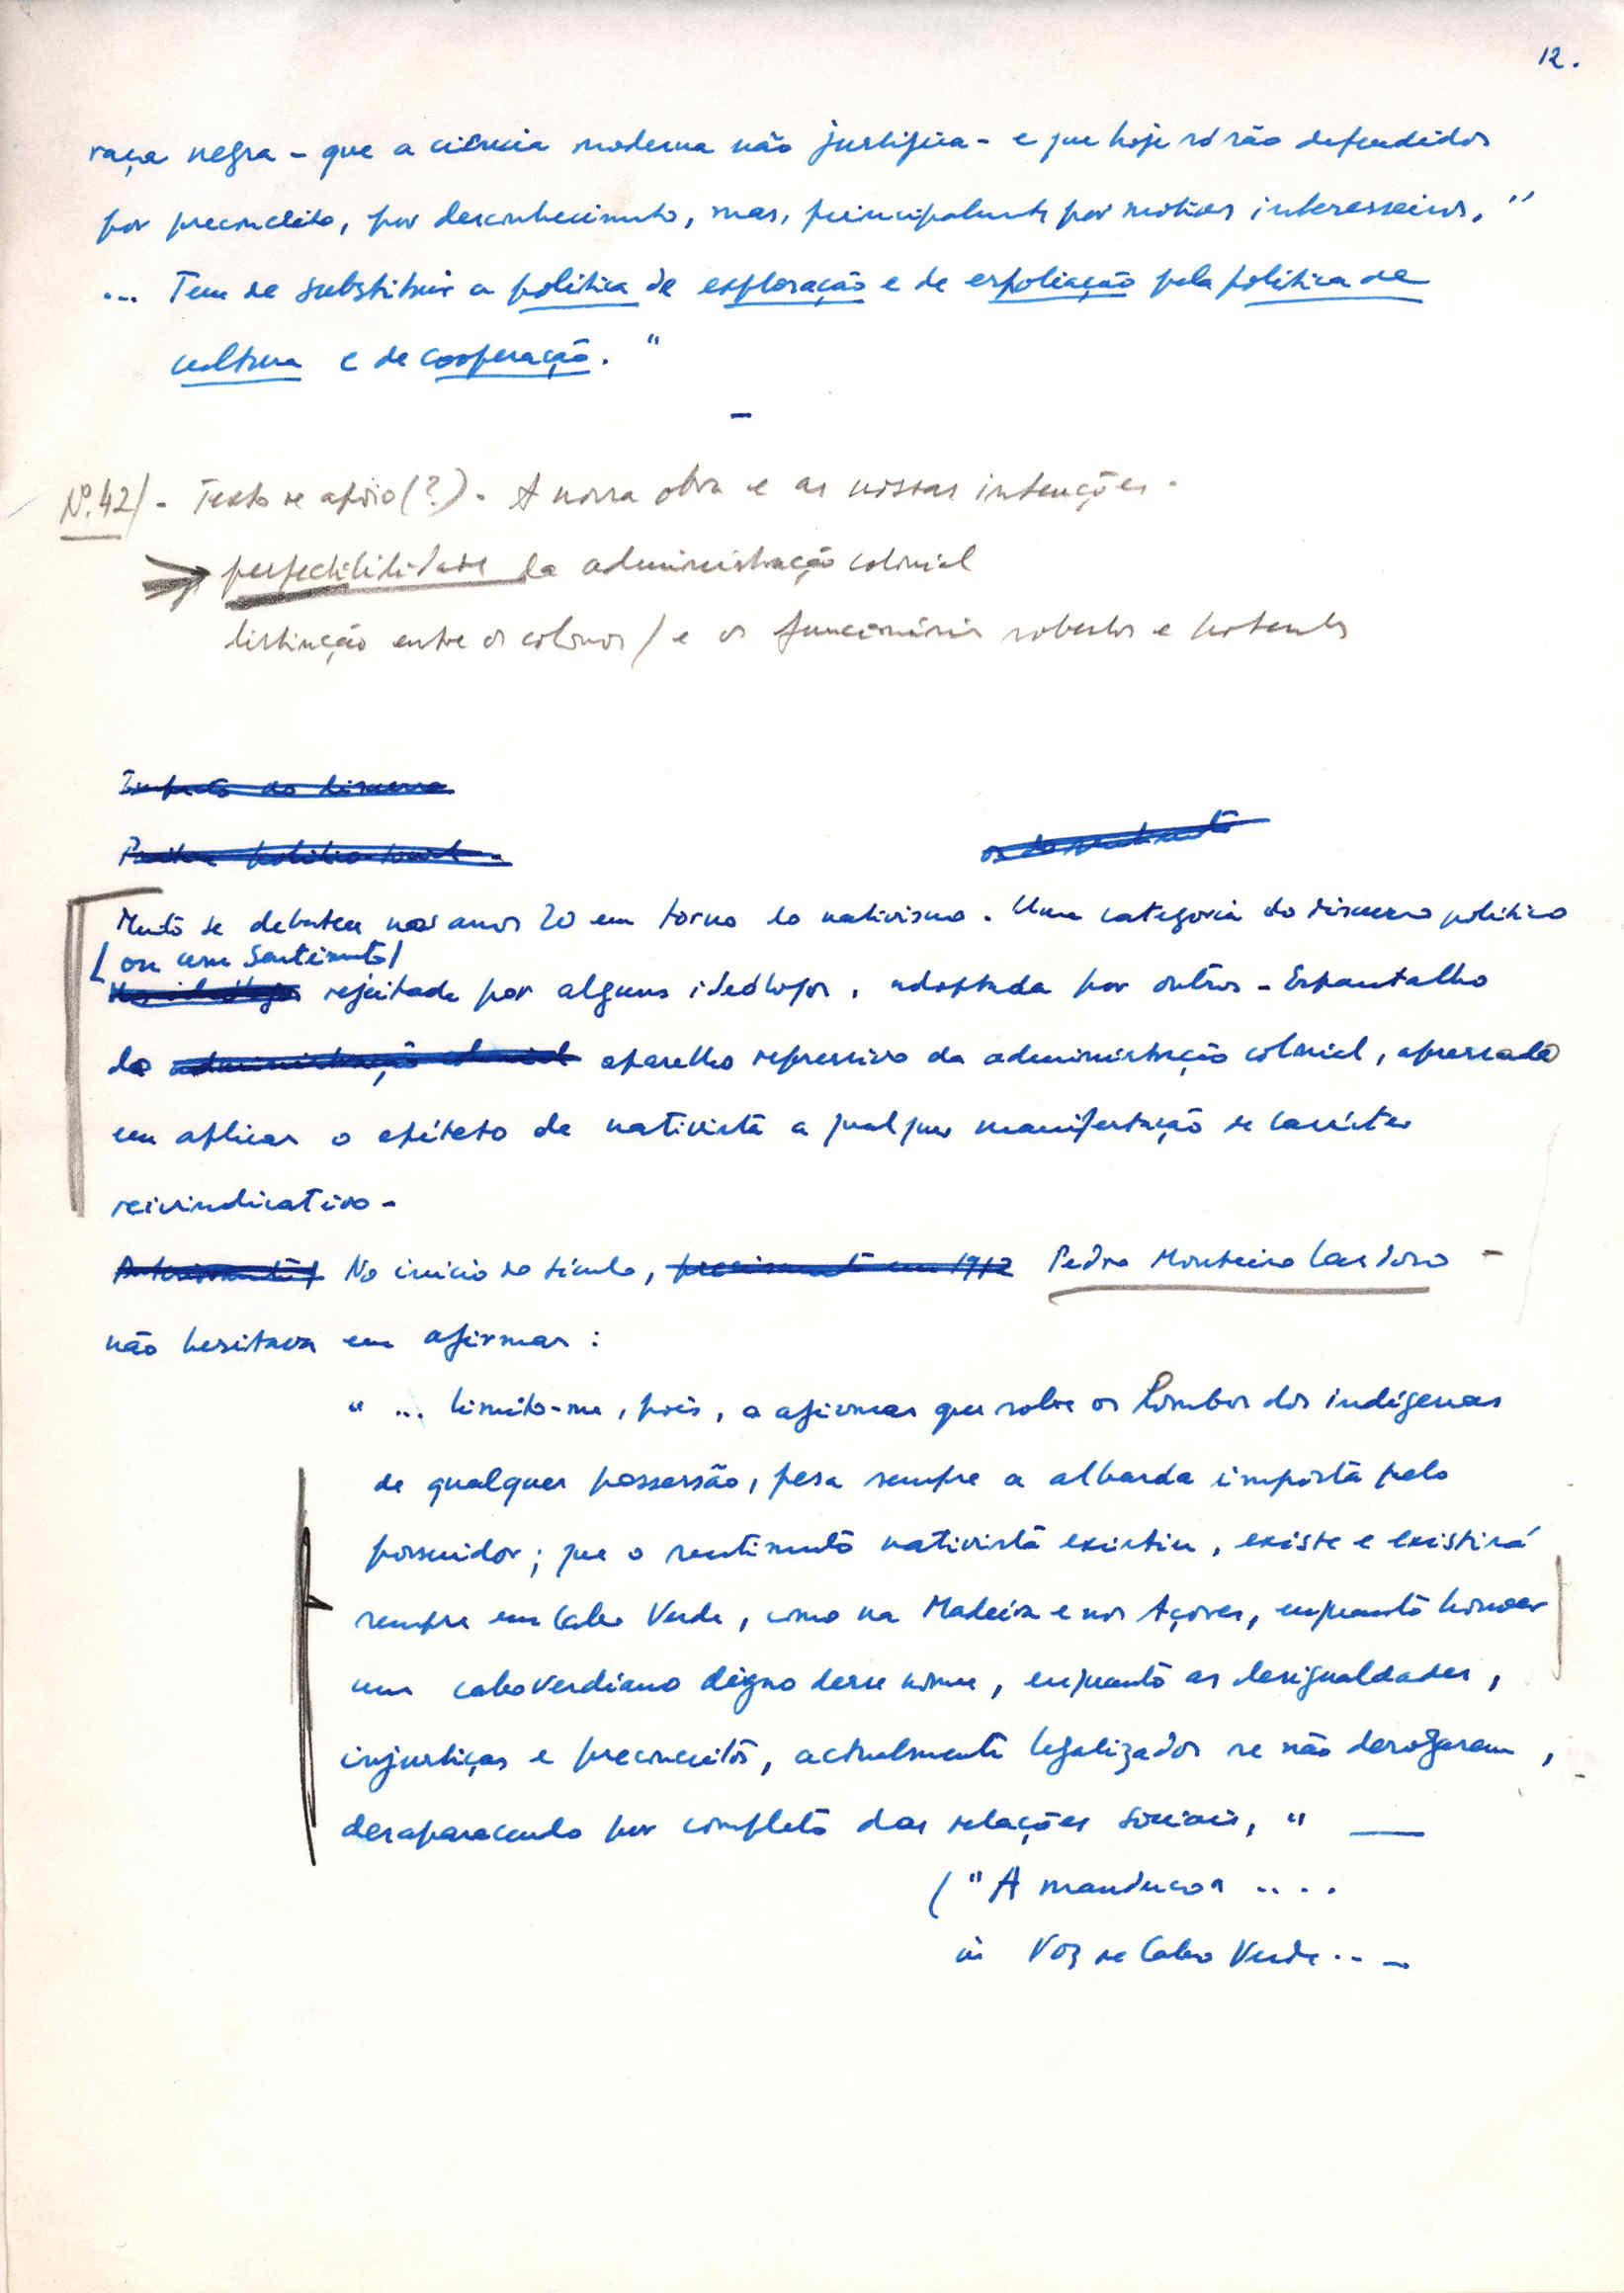 12.
raça negra - que a ciência moderna não justifica - e que hoje só são defendidos
por preconceito, por desconhecimento, mas, principalmente por motivos interesseiros."
... Tem de substituir a política de exploração e de espoliação pela política de
cultura e de cooperação."
-
Nº.42/- Texto de apoio (?) - A nossa obra e as nossas intenções -
perfectibilidade da administração colonial
distinção entre os colonos / e os funcionários robustos e
Impacto do discurso
Prática político-social -
Muito se debateu nos anos 20 em torno do nativismo. Uma categoria do discurso político
(ou um sentimento)
rejeitada por alguns ideólogos, adoptada por outros - Espantalho
do administração colonial aparelho repressivo da administração colonial, apressado
em aplicar o epíteto de nativista a qualquer manifestação de carácter
reivindicativo -
No início do século, precisamente em 1912 Pedro Monteiro Cardoso -
não hesitava em afirmar :
" ... limito-me, pois, a afirmar que sobre os lombos dos indígenas
de qualquer possessão, pesa sempre a albarda imposta pelo
possuidor ; que o sentimento nativista existiu, existe e existirá
sempre em Cabo Verde, como na Madeira e nos Açores, enquanto houver
um caboverdiano digno desse nome, enquanto as desigualdades,
injustiças e preconceitos, actualmente legalizados se não derogarem,
desaparecendo por completo das relações sociais, "
( "A manduco a ....
in Voz de Cabo Verde ...